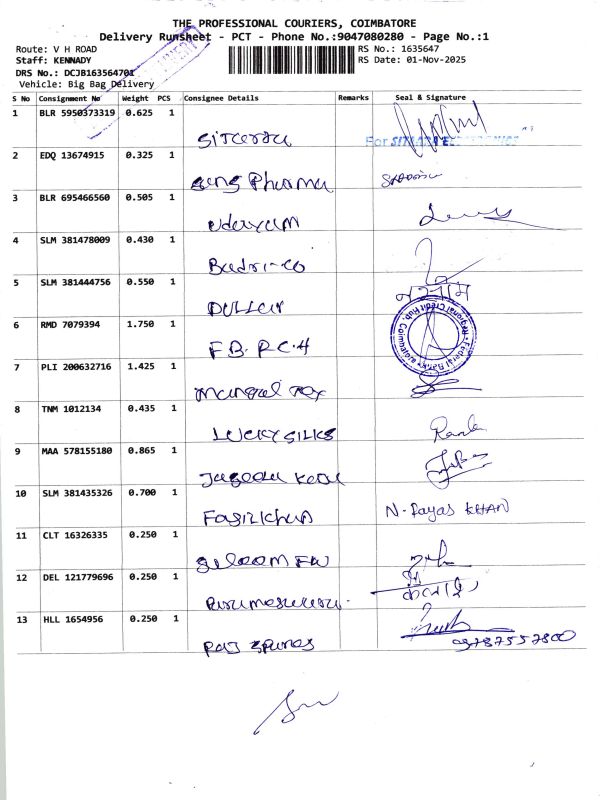 THE PROFESSIONAL COURIERS, COIMBATORE
Delivery Runsheet - PCT - Phone No.:9047080280 - Page No.:1
Route: V H ROAD
RS No.: 1635647
Staff: KENNADY
RS Date: 01-Nov-2025
DRS No.: DCJB163564701
Vehicle: Big Bag Delivery
S No Consignment No Weight PCS Consignee Details Remarks Seal & Signature
1 BLR 5950373319 0.625 1
For
2 EDQ 13674915 0.325 1 Pharma
3 BLR 695466560 0.505 1 Udayam
4 SLM 381478009 0.430 1 Badri-co
5 SLM 381444756 0.550 1
6 RMD 7079394 1.750 1 F.B.R.C.H
Federal Bank
Regional Credit Hub, Coimbatore
7 PLI 200632716 1.425 1
8 TNM 1012134 0.435 1 LUCKY SILKS
9 MAA 578155180 0.865 1
10 SLM 381435326 0.700 1 N-Fayas KHAN
11 CLT 16326335 0.250 1
12 DEL 121779696 0.250 1
13 HLL 1654956 0.250 1
9787557800